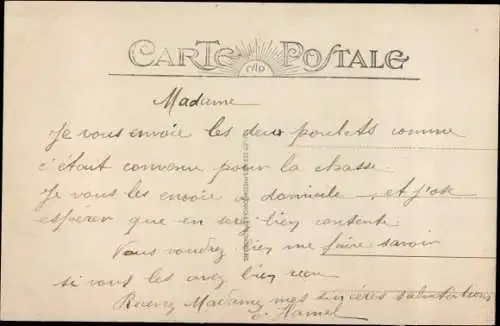 CARTE POSTALE
Madame
Je vous envoie les deux poulets comme
c'était convenu pour la chasse.
Je vous les envoie a domicile, et j'ose
espérer que en serez bien contente
Vous voudrez bien me faire savoir
si vous les avez bien reçu
Recevez Madame mes sincères salutations
Hamel